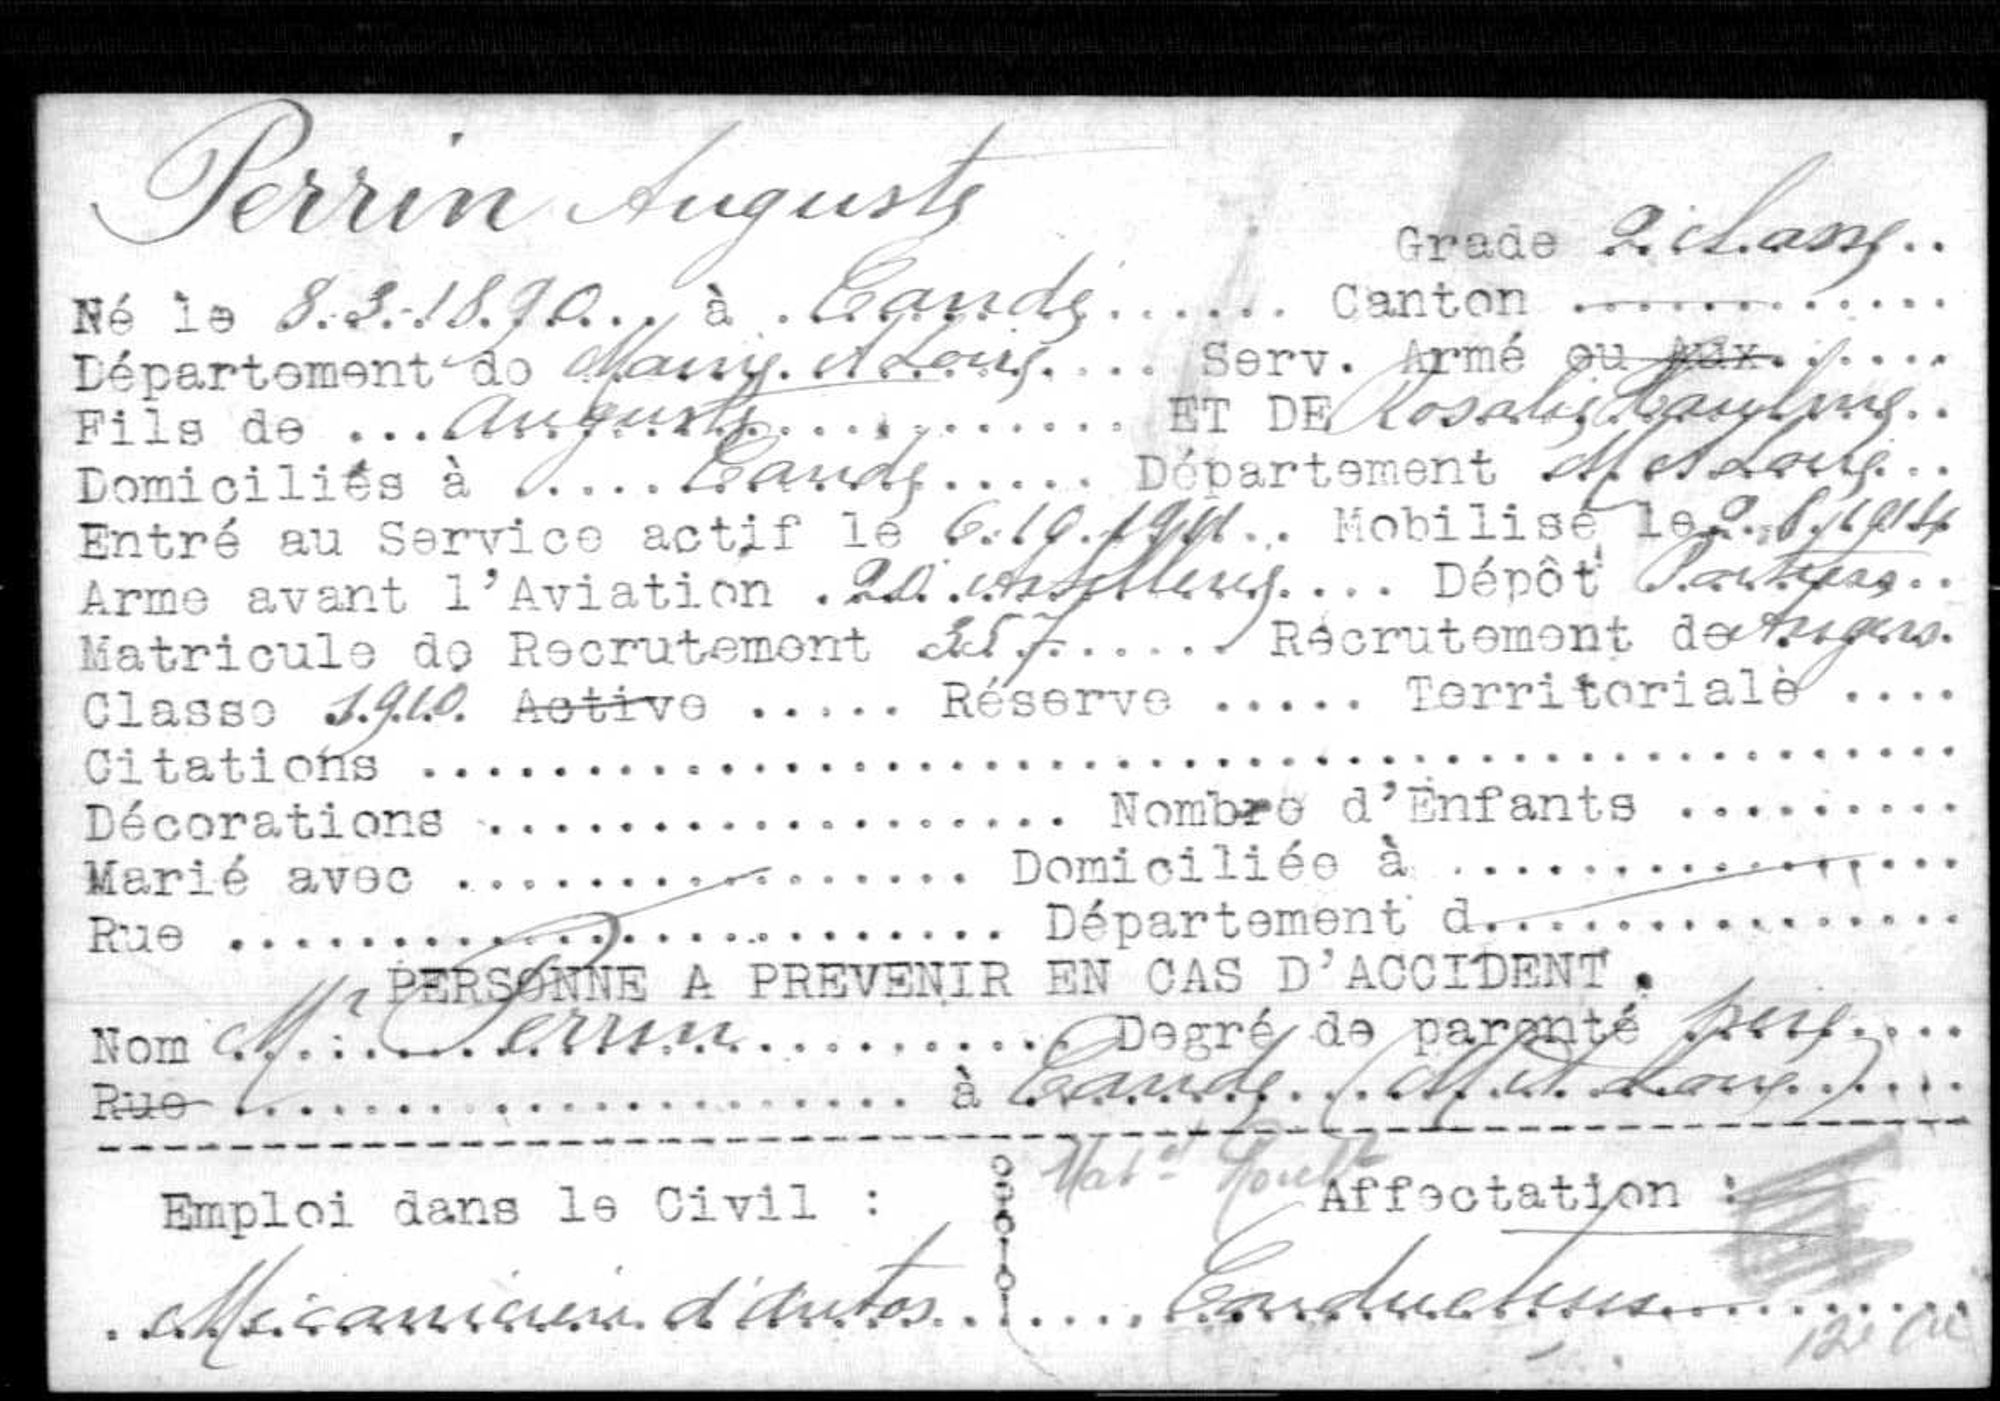 Perrin Auguste
Grade 2e classe
Né le 8.3.1890 à Candé Canton
Département de Maine et Loire Serv. Armé ou Aux.
Fils de Auguste ET DE Rosalie
Domiciliés à Candé Département M et Loire
Entré au Service actif le 6.10.1911 Mobilisé le 2.8.1914
Arme avant l'Aviation 20e Artillerie Dépôt Poitiers
Matricule de Recrutement 357 Récrutement de Angers.
Classe 1910. Active Réserve Territoriale
Citations
Décorations Nombre d'Enfants
Marié avec Domiciliée à
Rue Département d
PERSONNE A PREVENIR EN CAS D'ACCIDENT.
Nom Mr Perrin Degré de parenté père
Rue à Candé (M et Loire)
Emploi dans le Civil : Affectation :
Mécanicien d'autos Conducteur